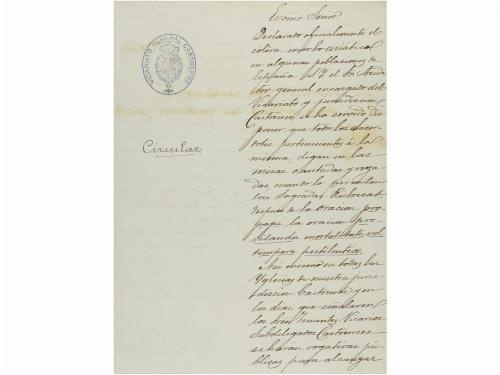 VICARIATO GENERAL CASTRENSE
Circular
Excmo Señor
Declarado oficialmente el
cólera morbo asiático
en algunas poblaciones de
España el Y. el Sr. Audi
tor general encargado del
Vicariato y jurisdiccion
Castrense se ha servido dis
poner que todos los Sacer
dotes pertenecientes á la
misma, digan en las
misas cantadas y reza
das, cuando lo permitan
las Sagradas Rubricas
despues de la oracion pro
papa la oracion pro
vitanda mortalitate vel
tempore pestilentiæ.
Asi mismo en todas las
Yglesias de nuestra juris
diccion Castrense y en
los dias que señalaren
los Tenientes Vicarios
Subdelegados Castrenses
se harán rogativas pú
blicas para alcanzar